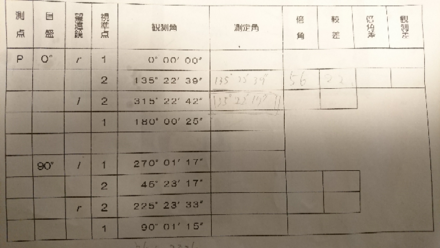 測点 目盛 望遠鏡 視準点 観測角 測定角 倍角 較差 倍角差 観測差
P 0° r 1 0° 00' 00"
2 135° 22' 39"
l 2 315° 22' 42"
1 180° 00' 25"
90° l 1 270° 01' 17"
2 45° 23' 17"
r 2 225° 23' 33"
1 90° 01' 15"